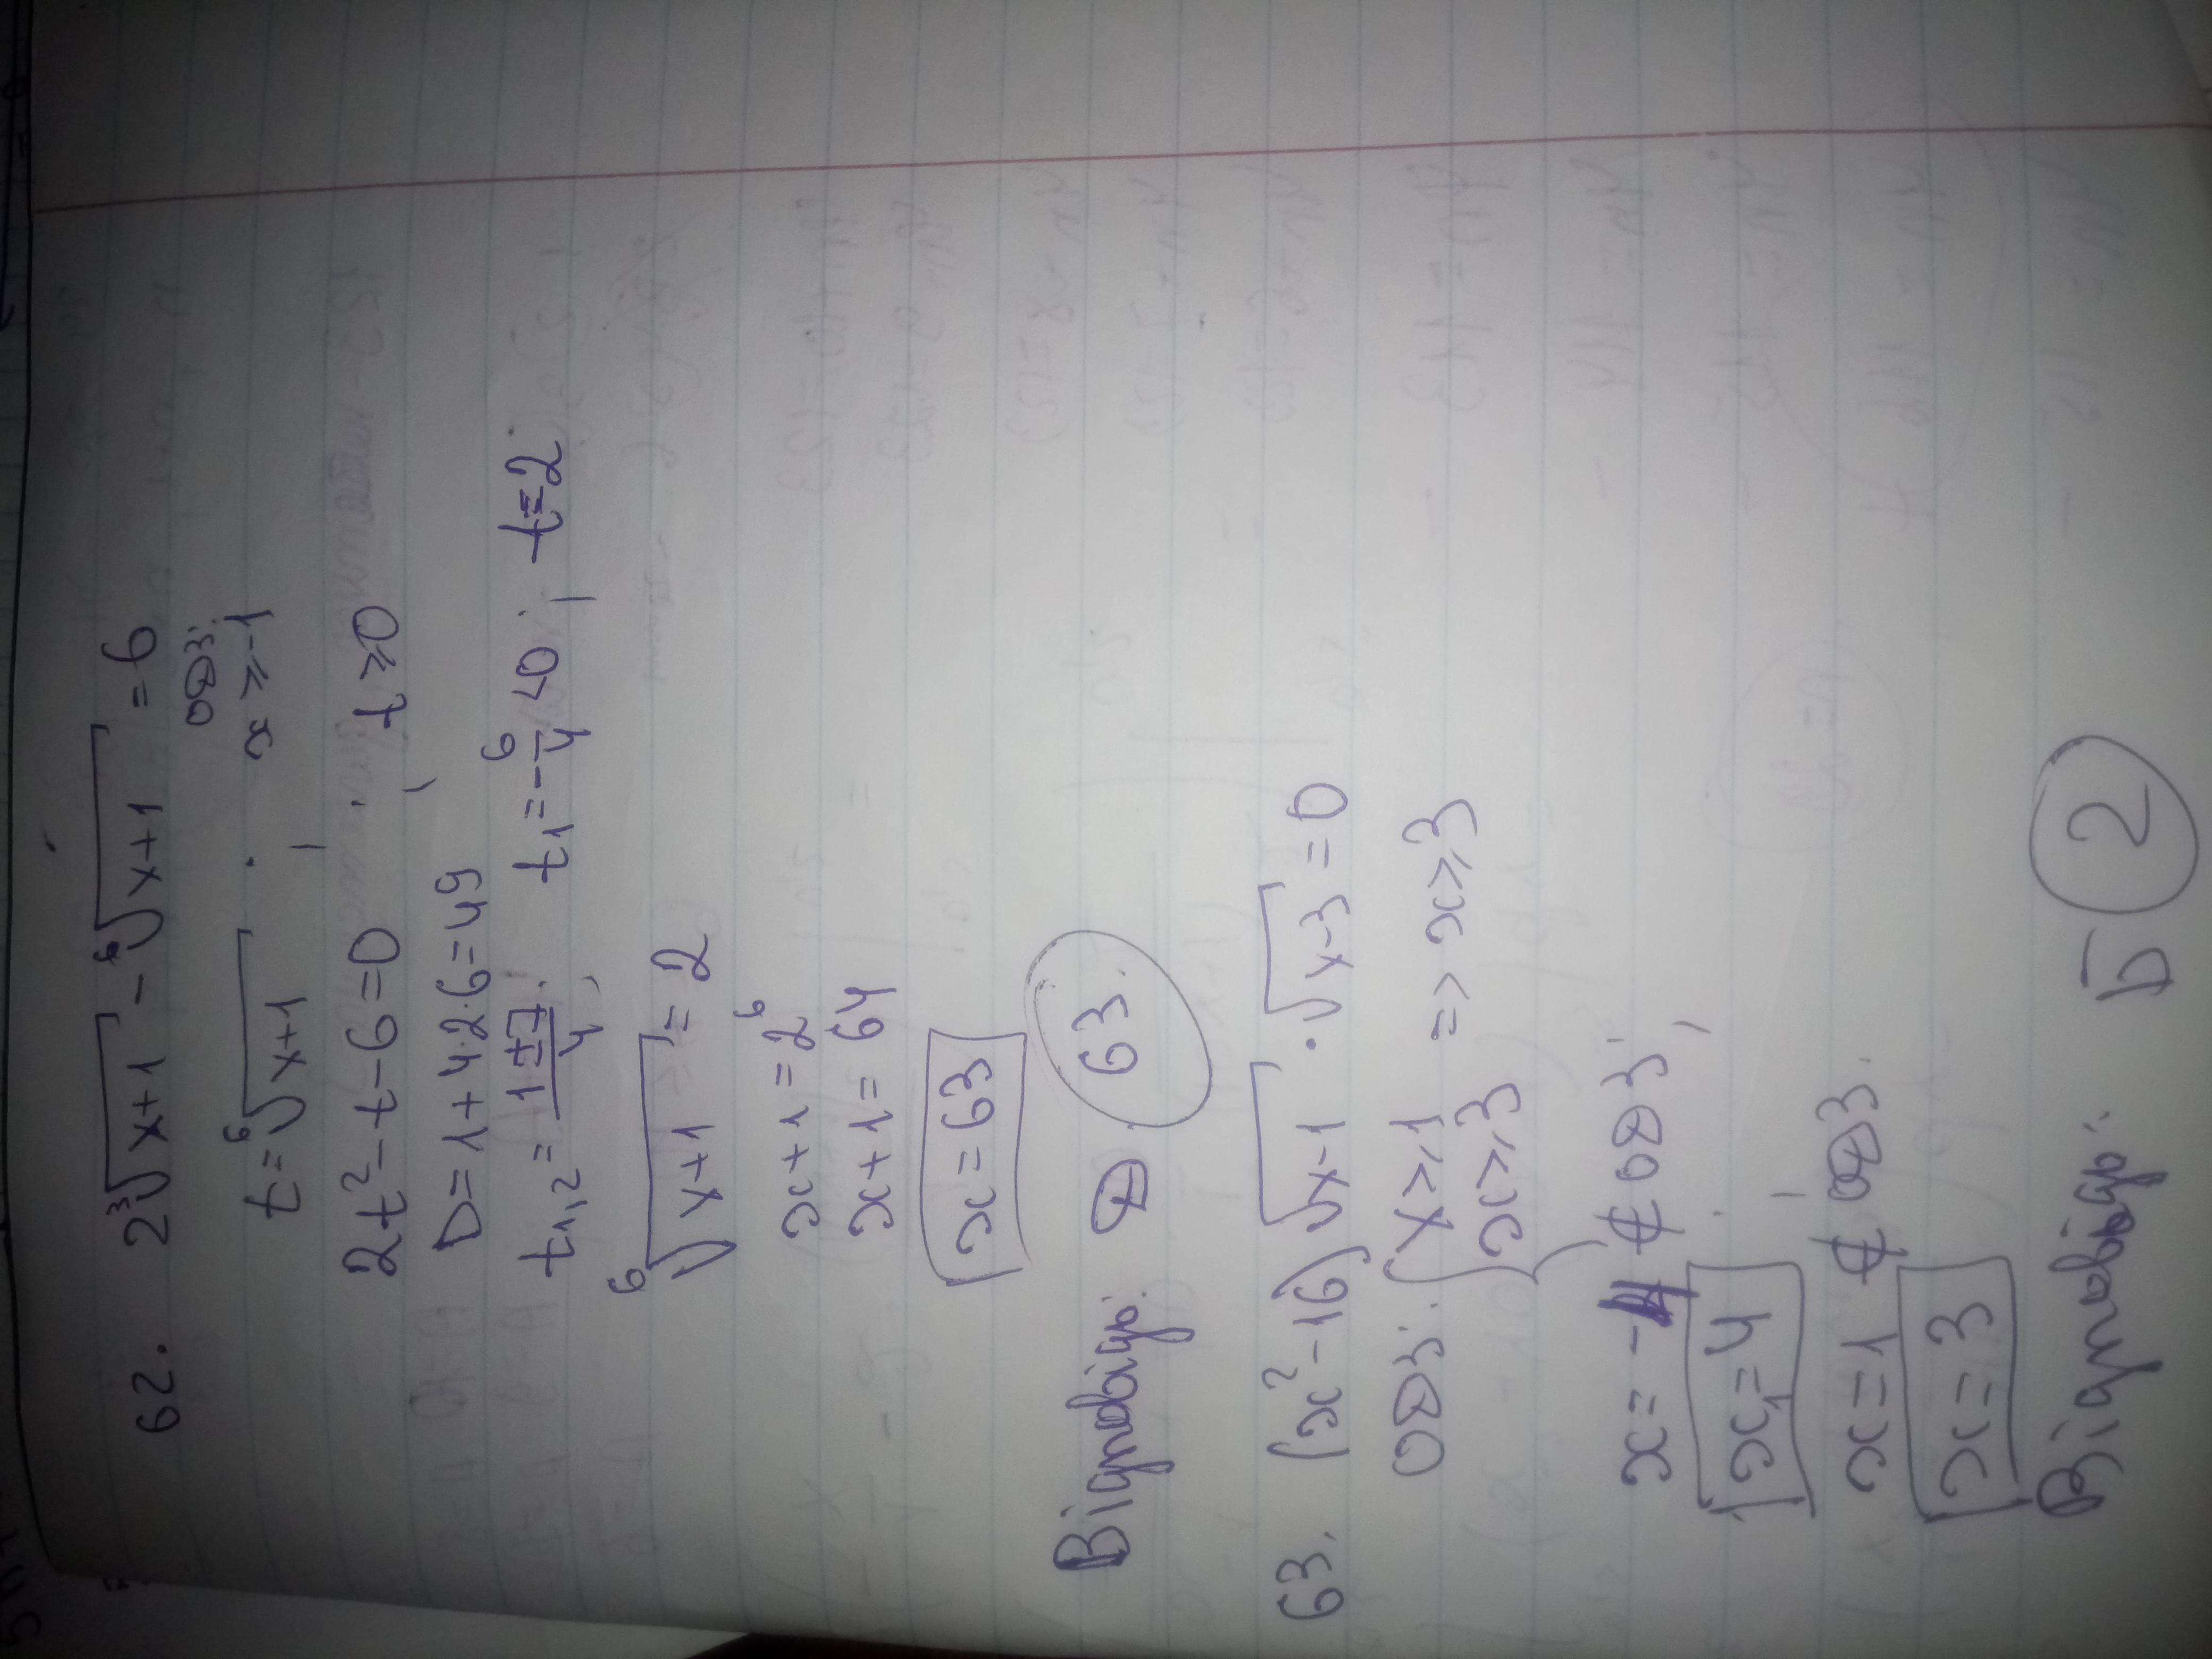 62. 2∛x+1 - ⁶√x+1 = 6
ОДЗ:
t = ⁶√x+1 ; x ≥ -1
2t² - t - 6 = 0 ; t ≥ 0
D = 1 + 4·2·6 = 49
t₁,₂ = (1±7)/4 ; t₁ = -6/4 < 0 ; t = 2
⁶√x+1 = 2
x+1 = 2⁶
x+1 = 64
x = 63
Відповідь: Д. 63.
63. (x² - 16) √x-1 · √x-3 = 0
ОДЗ: { x ≥ 1 => x ≥ 3
x ≥ 3
x = -4 ∉ ОДЗ ;
x₁ = 4 ;
x = 1 ∉ ОДЗ.
x = 3
Відповідь: Б 2